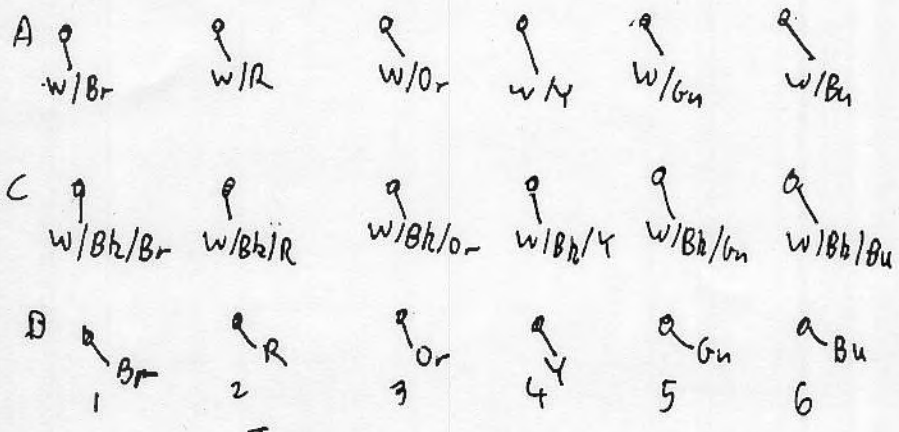 A W/Br W/R W/Or W/Y W/Gn W/Bu
C W/Bk/Br W/Bk/R W/Bk/Or W/Bk/Y W/Bk/Gn W/Bk/Bu
D Br R Or Y Gn Bu
1 2 3 4 5 6